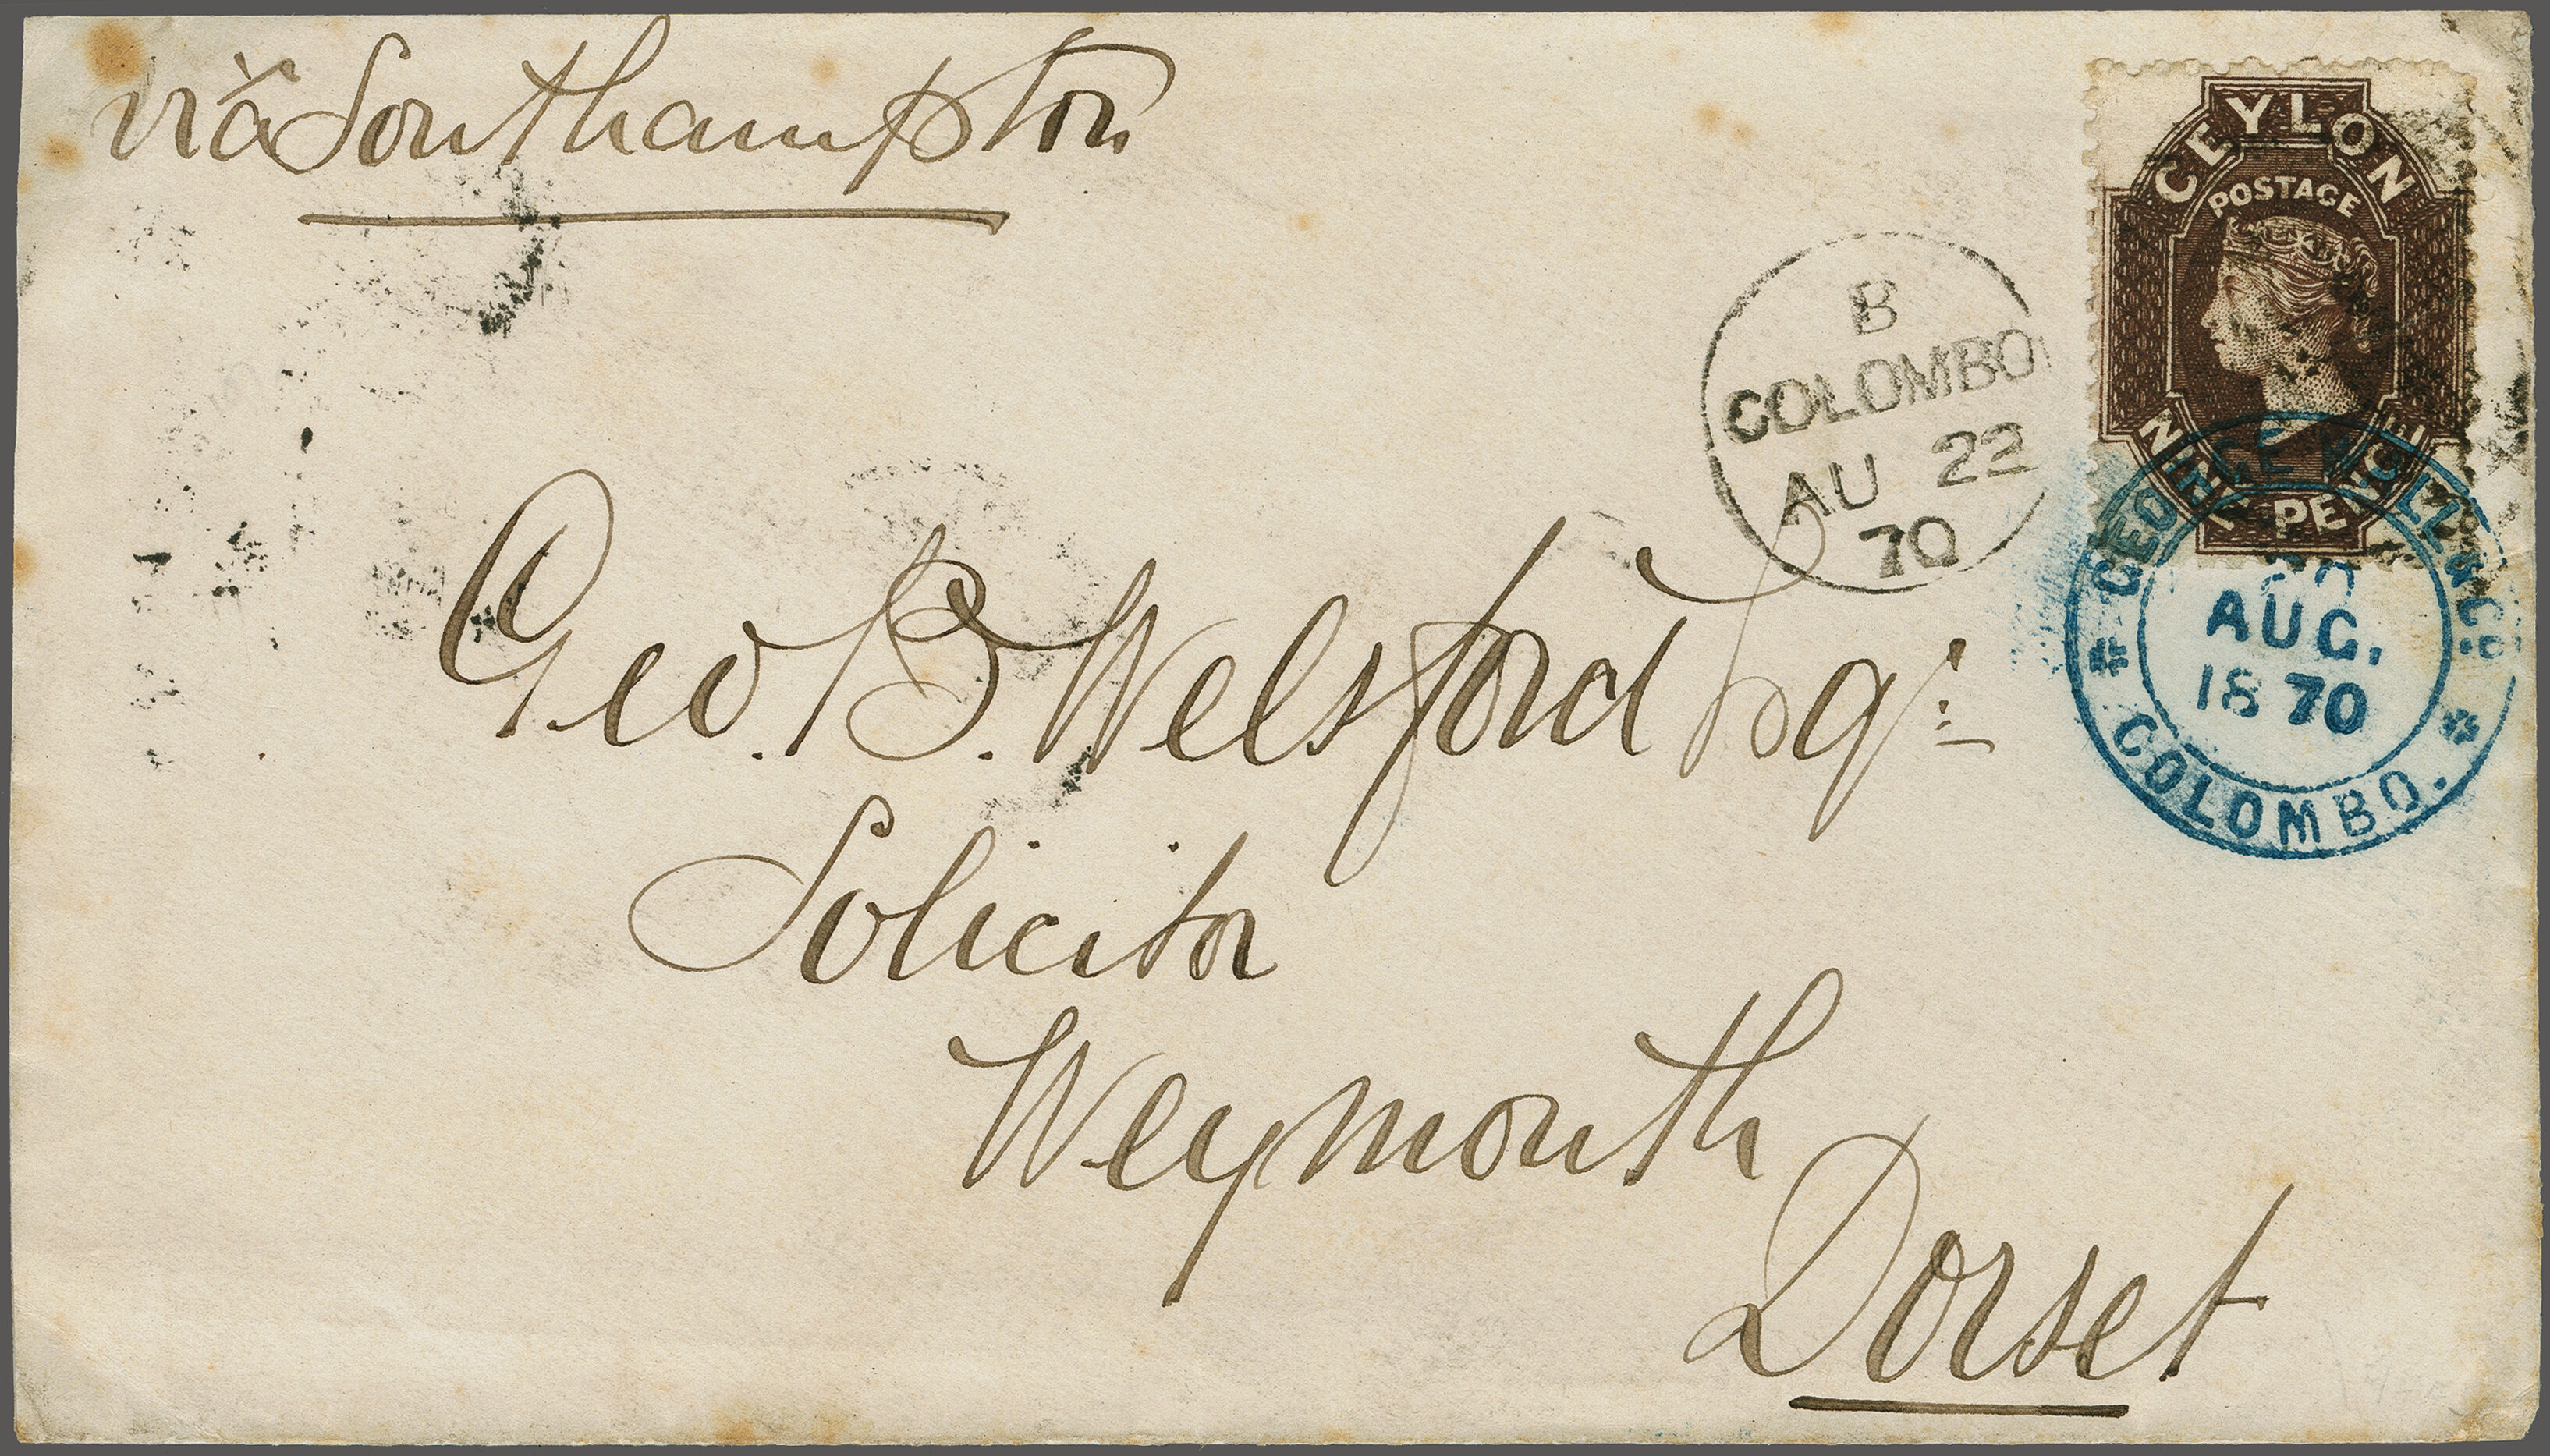 via Southampton
CEYLON
POSTAGE
NINE PENCE
B
COLOMBO
AU 22
70
GEO
& Co.
AUG.
1870
COLOMBO.
Geo. B. Welsford Esqr.
Solicitor
Weymouth
Dorset